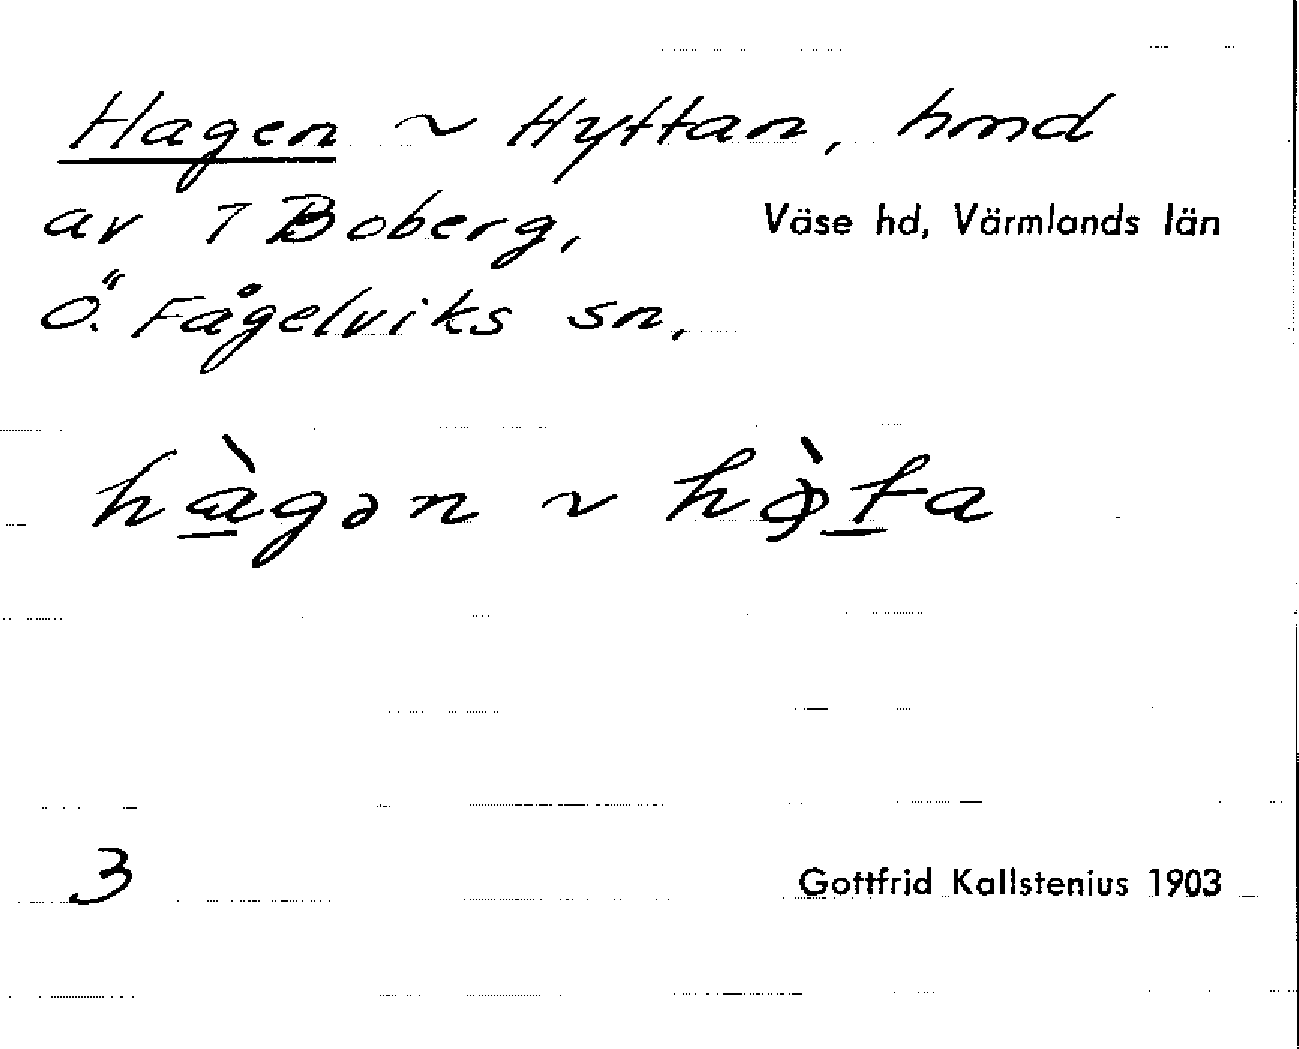 Hagen ~ Hyttan, hmd
av 7 Boberg,
Väse hd, Värmlands län
Ö. Fågelviks sn.
hà̱gən ~ hø̀ṯa
3
Gottfrid Kallstenius 1903